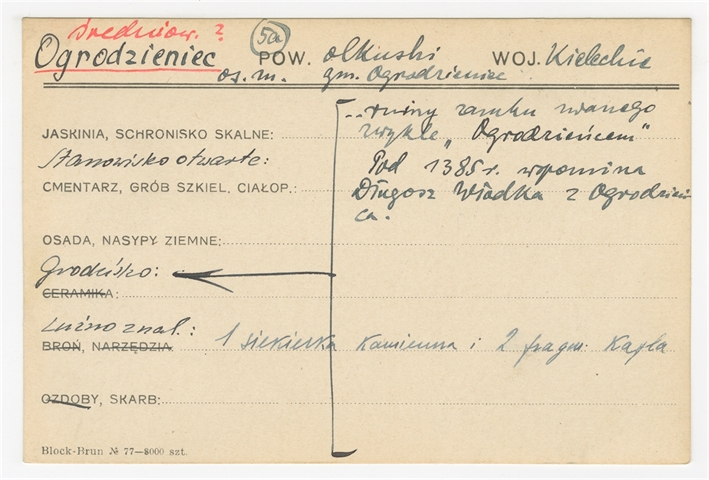 Średniow. ?
Ogrodzieniec 5a POW. olkuski WOJ. Kieleckie
os. m. gm. Ogrodzieniec
...ruiny zamku zwanego
JASKINIA, SCHRONISKO SKALNE: zwykle „Ogrodzieńcem”
Stanowisko otwarte: Pod 1385 r. wspomina
CMENTARZ, GRÓB SZKIEL., CIAŁOP.: Długosz Władka z Ogrodzień
ca.
OSADA, NASYPY ZIEMNE:
Grodzisko:
CERAMIKA:
Luźno znal.:
BROŃ, NARZĘDZIA 1 siekierka kamienna i 2 fragm. kafla
OZDOBY, SKARB:
Block-Brun № 77—8000 szt.